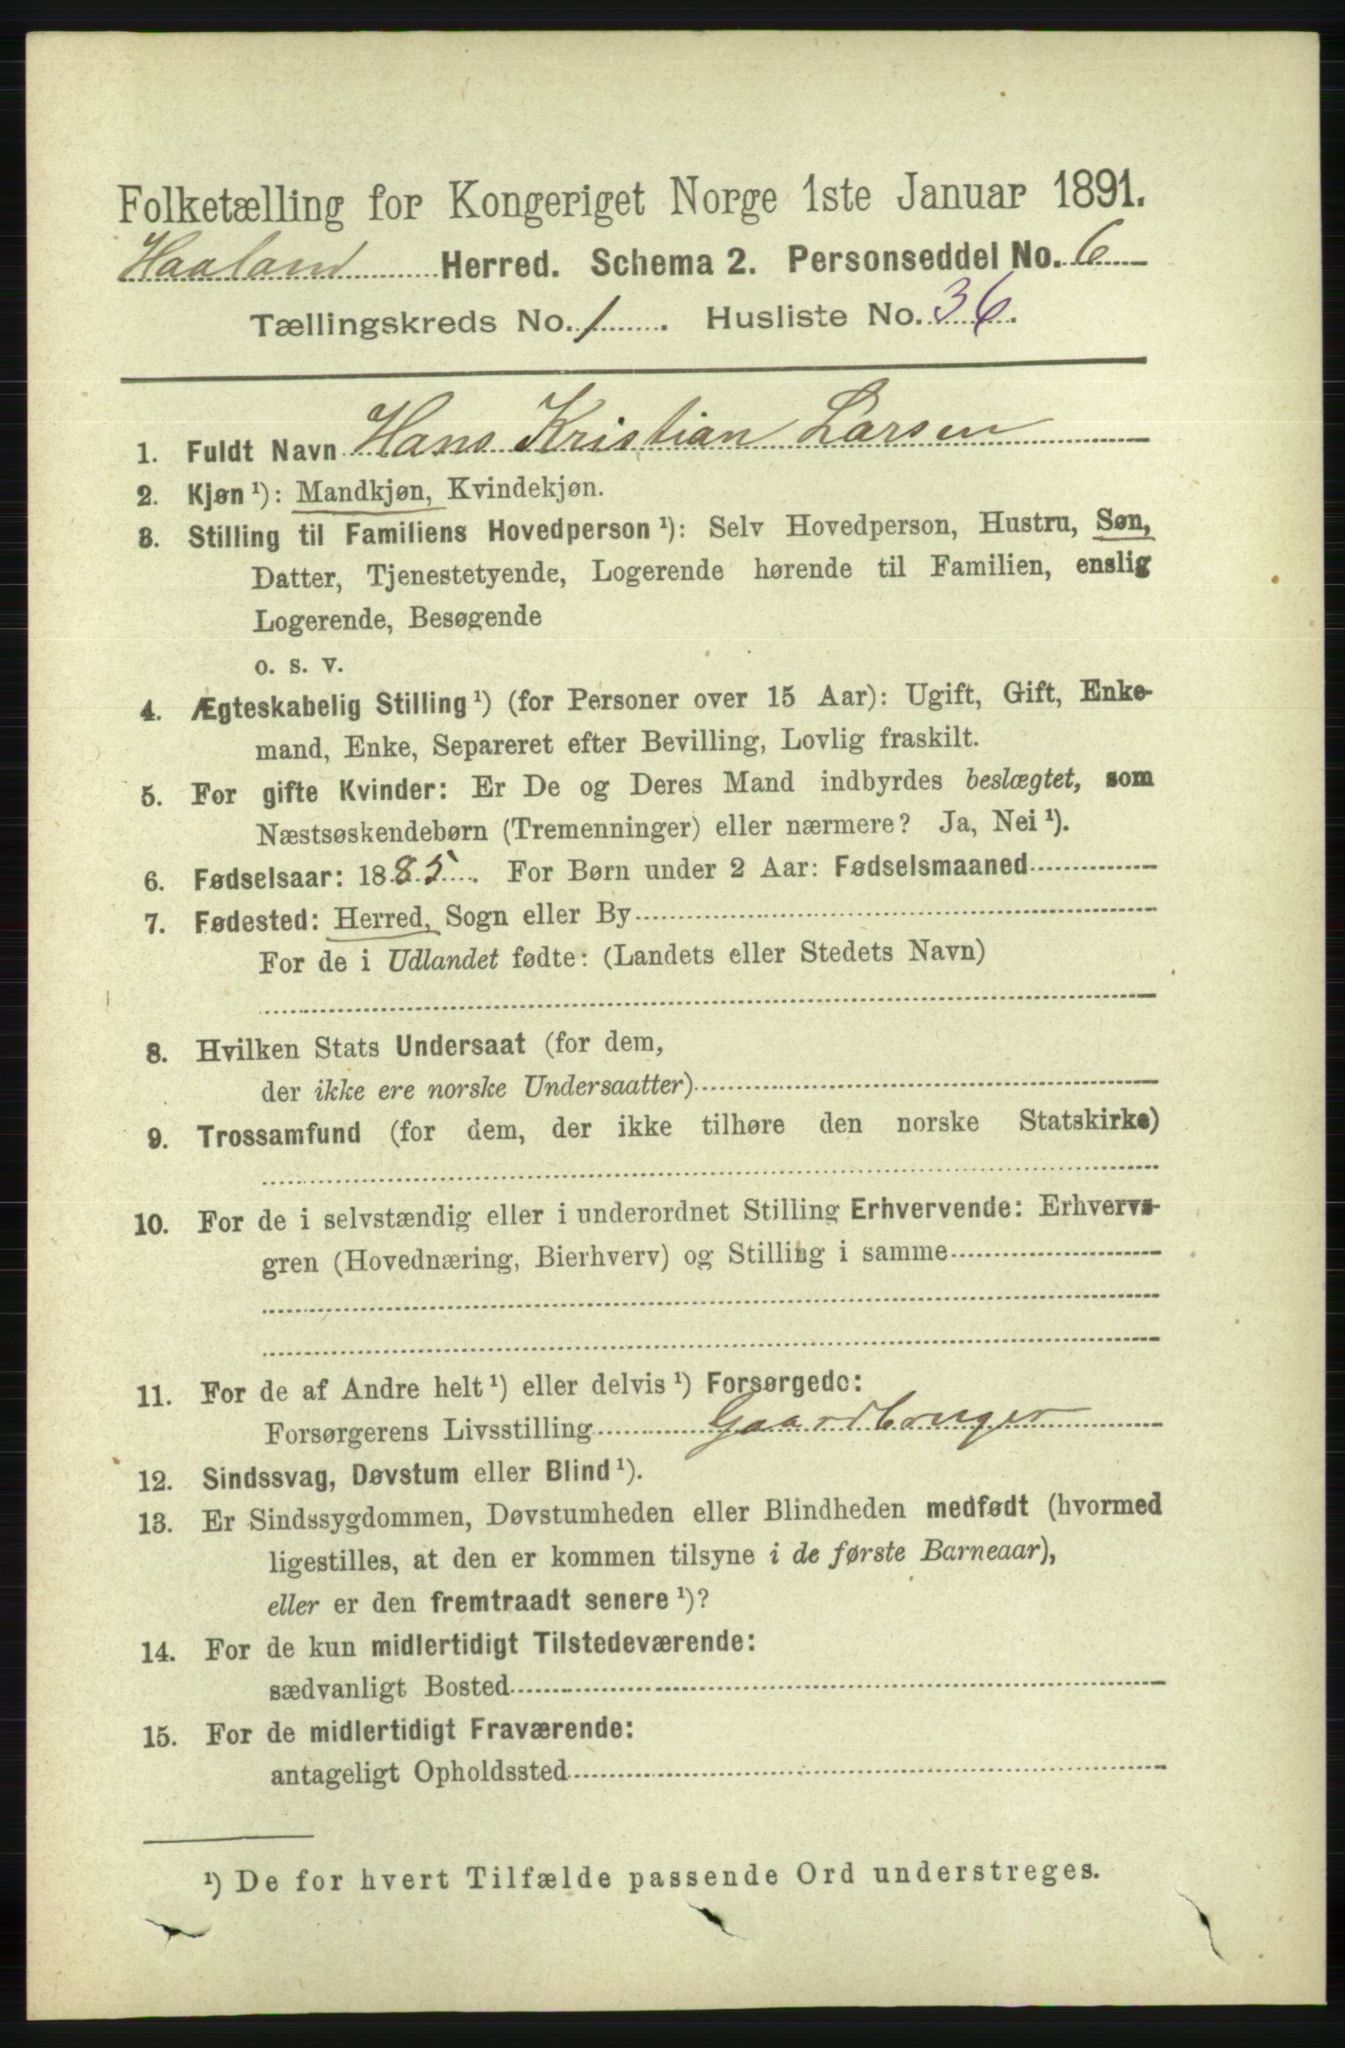 Folketælling for Kongeriget Norge 1ste Januar 1891.
Haaland Herred. Schema 2. Personseddel No. 6
Tællingskreds No. 1. Husliste No. 36.
1. Fuldt Navn Hans Kristian Larsen
2. Kjøn ¹): Mandkjøn, Kvindekjøn.
3. Stilling til Familiens Hovedperson ¹): Selv Hovedperson, Hustru, Søn,
Datter, Tjenestetyende, Logerende hørende til Familien, enslig
Logerende, Besøgende
o. s. v.
4. Ægteskabelig Stilling ¹) (for Personer over 15 Aar): Ugift, Gift, Enke-
mand, Enke, Separeret efter Bevilling, Lovlig fraskilt.
5. For gifte Kvinder: Er De og Deres Mand indbyrdes beslægtet, som
Næstsøskendebørn (Tremenninger) eller nærmere? Ja, Nei ¹).
6. Fødselsaar: 1885. For Børn under 2 Aar: Fødselsmaaned
7. Fødested: Herred, Sogn eller By
For de i Udlandet fødte: (Landets eller Stedets Navn)
8. Hvilken Stats Undersaat (for dem,
der ikke ere norske Undersaatter)
9. Trossamfund (for dem, der ikke tilhøre den norske Statskirke)
10. For de i selvstændig eller i underordnet Stilling Erhvervende: Erhvervs-
gren (Hovednæring, Bierhverv) og Stilling i samme
11. For de af Andre helt ¹) eller delvis ¹) Forsørgede:
Forsørgerens Livsstilling Gaardbruger
12. Sindssvag, Døvstum eller Blind ¹).
13. Er Sindssygdommen, Døvstumheden eller Blindheden medfødt (hvormed
ligestilles, at den er kommen tilsyne i de første Barneaar),
eller er den fremtraadt senere ¹)?
14. For de kun midlertidigt Tilstedeværende:
sædvanligt Bosted
15. For de midlertidigt Fraværende:
antageligt Opholdssted
¹) De for hvert Tilfælde passende Ord understreges.